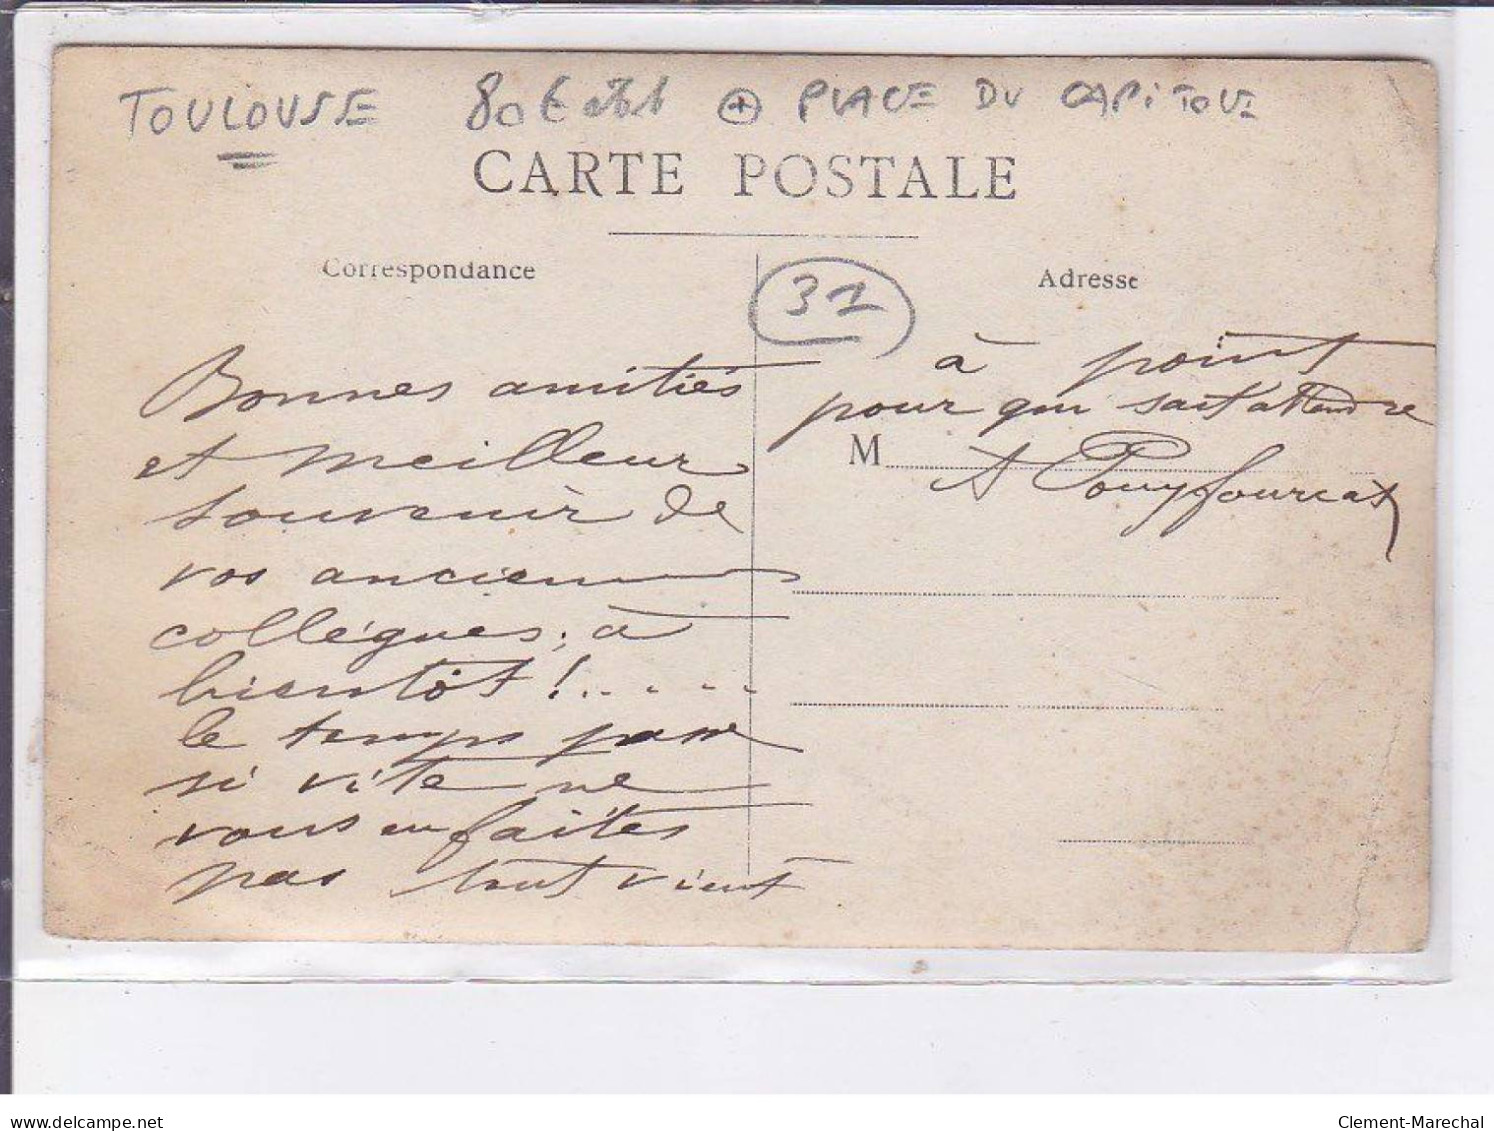 TOULOUSE 80€ ⊕ PLACE DU CAPITOLE
CARTE POSTALE
Correspondance
31
Adresse
Bonnes amitiés
et meilleur
souvenir de
vos anciens
collègues, à
bientôt !.....
le temps passe
si vite ne
vous en faites
pas tout vient
à point
pour qui sait attendre
M
A Pouyfourcat
delcampe.net
Clement-Marechal